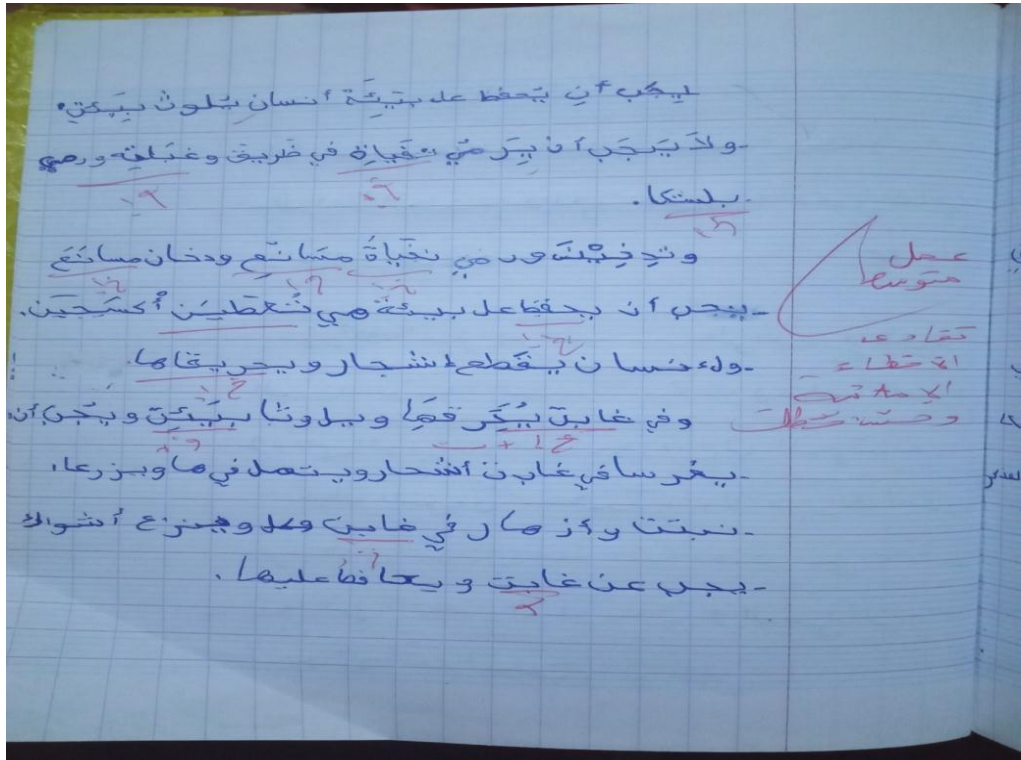 يجب أن يحفظ عل بيئة أنسان يلوث بيئتي.
ولا يجب أن يرمي نقياة في طريق وغبلته ورمي
بلستكا.
ورمي نفياة مسانع ودخان مسانع
يجب أن يحفظ عل بيئة هي تعطين أكسجين.
ولءنسان يقطع ءشجار ويحريقاها
وفي غابت يحرقها ويلوثا بيئت ويجب أن
يغرسا في غابت أشجار ويتهل في ها ويزرعا
نبتت وأزهار في غابت وينزع أشواك
يجب عن غابت ويحافظ عليها.
عمل
متوسط
تفادي
الأخطاء
الإملائية
وحسن خطك